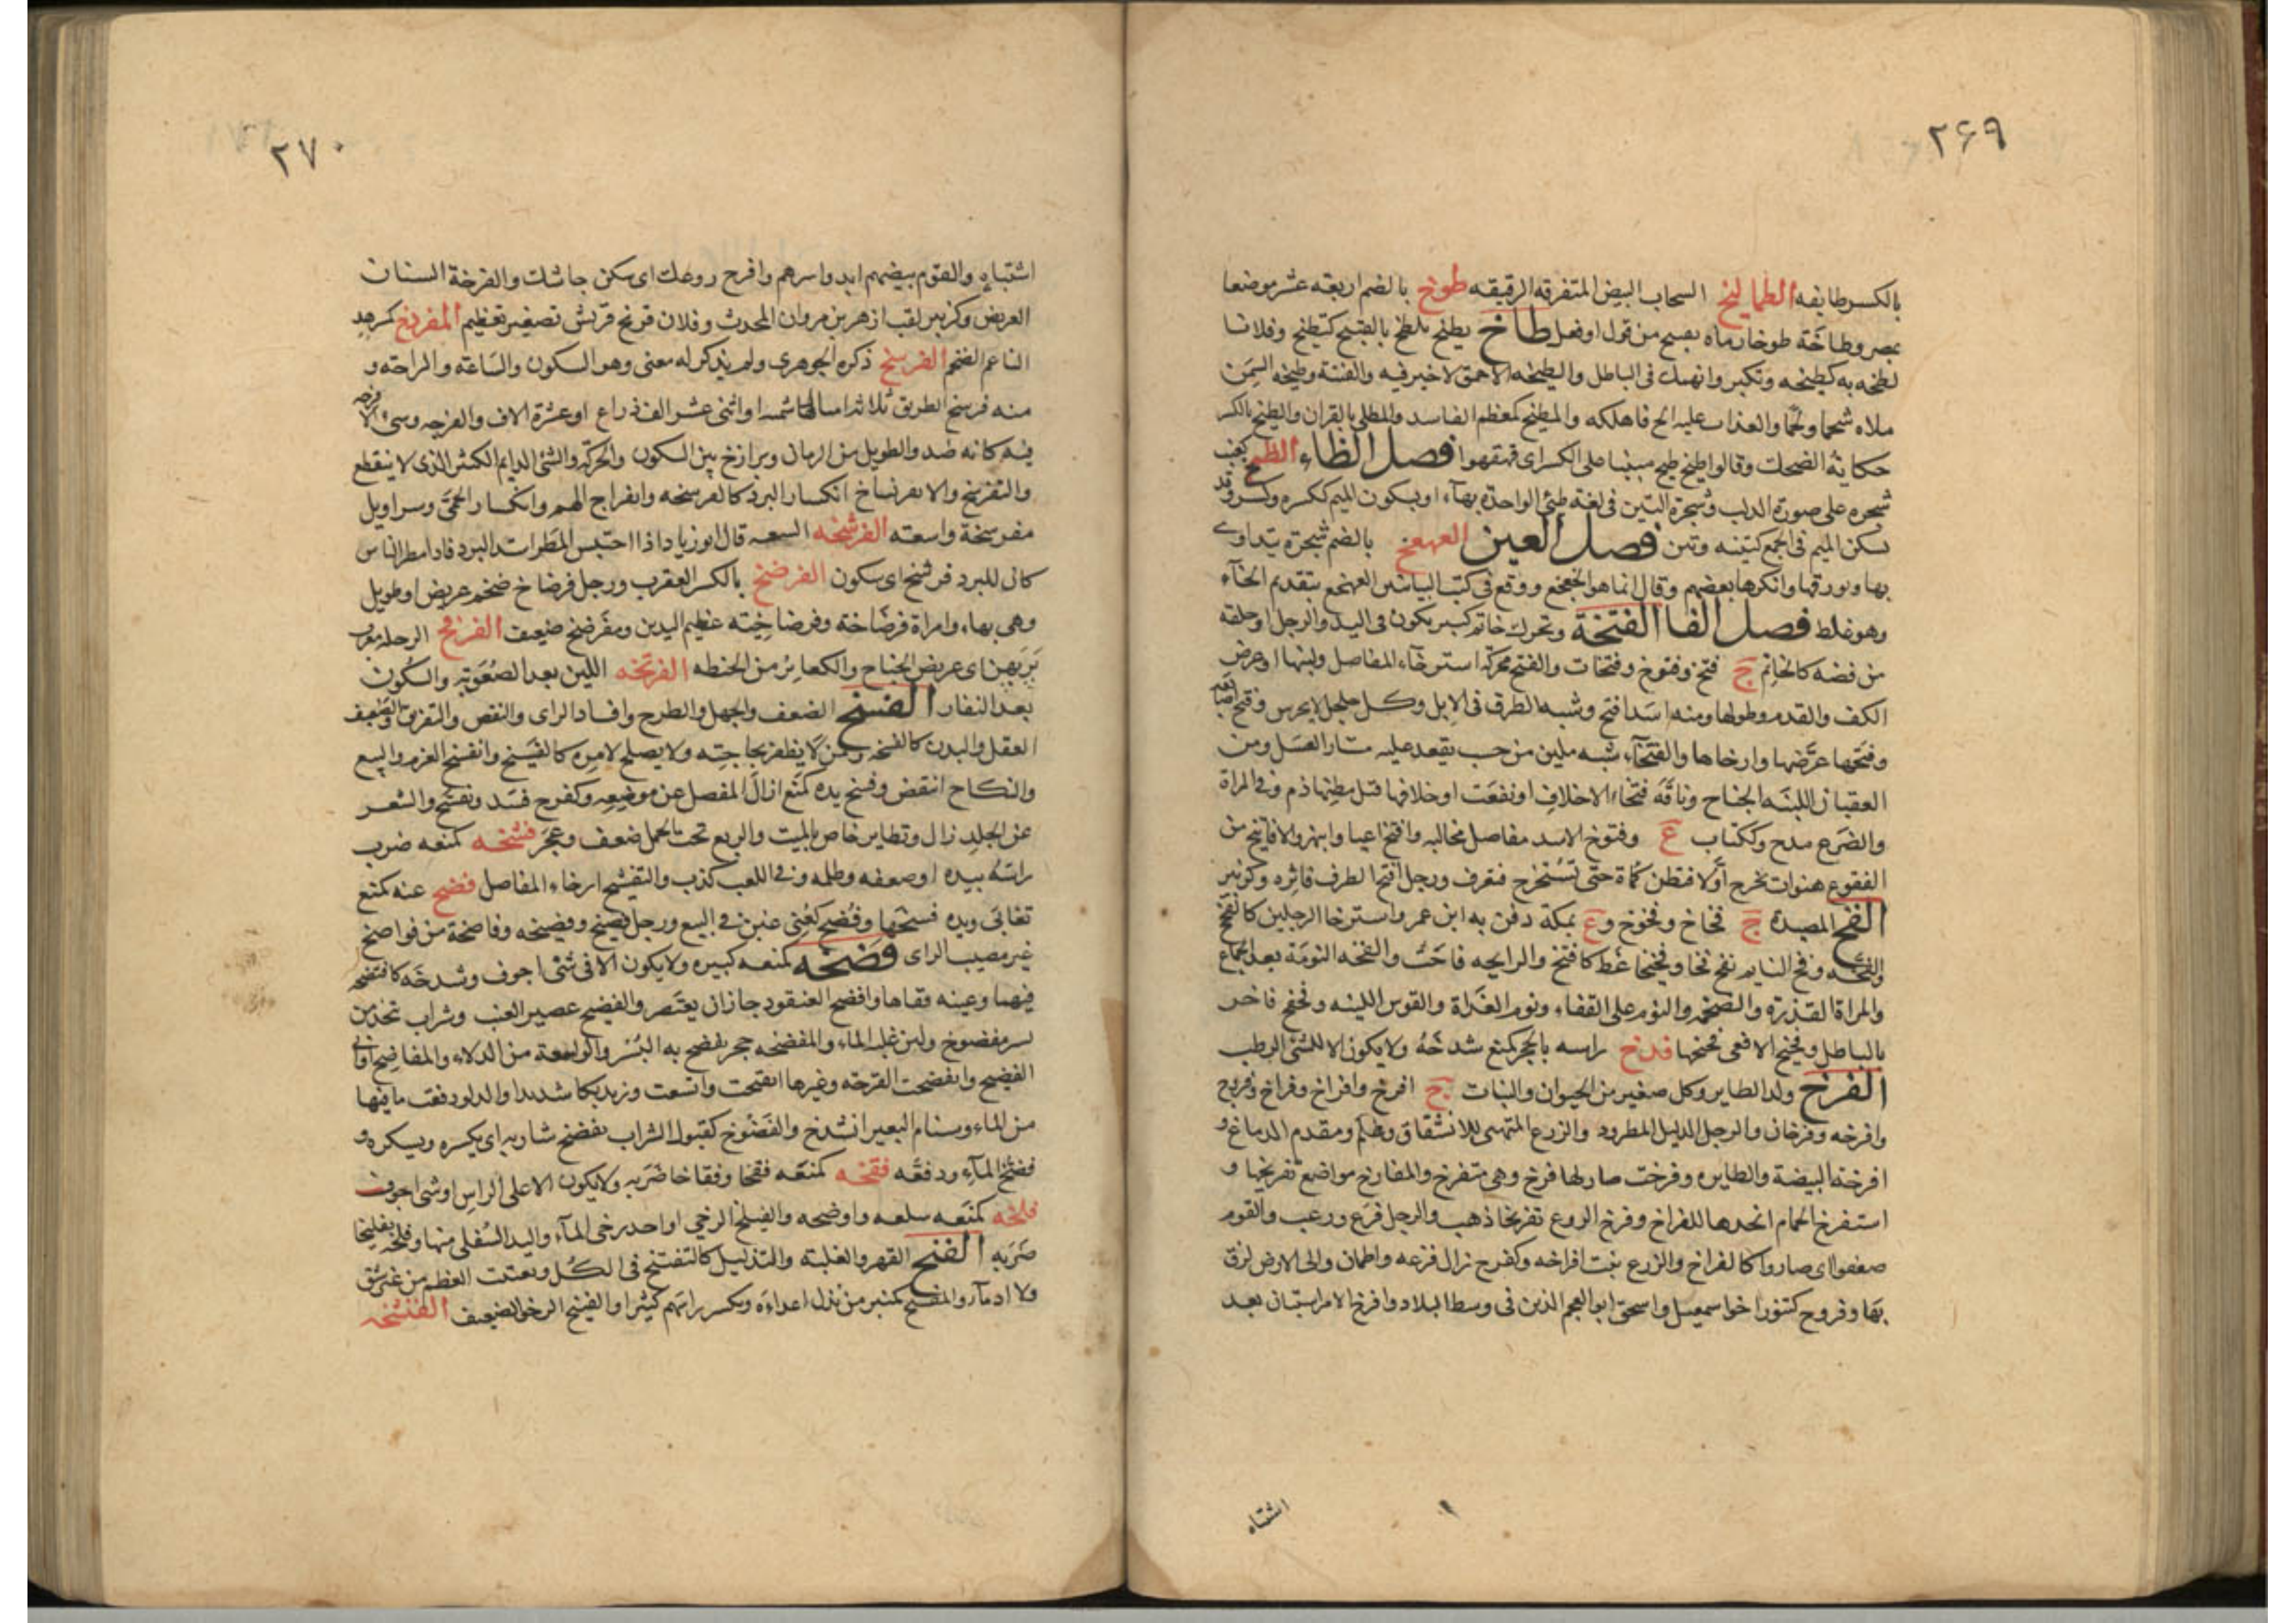 ۲۶۹
بالكسر طايفه الطماليخ السحاب البيض المتفرقه الرقيقه طوخ بالضم اربعة عشر موضعا
بمصر وطاخة طوخا رماه بقبيح من قول او فعل طاخ يطيخ تلطخ بالقبيح كتطيخ وفلانا
لطخه به كطيخه وتكبر وانهمك فى الباطل والطيخه الاحمق لا خير فيه والفتنة وطيخه السمن
ملاه شحما ولحما والعذاب عليه الح فاهلكه والمطيخ كمعظم الفاسد والمطلى بالقران والطيخ بالكسر
حكاية الضحك وقالوا طيخ طيخ مبنيا على الكسر اى قهقهوا فصل الظاء الظمخ كعنب
شجره على صورة الدلب وشجرة التين فى لغة طيئ الواحدة بهاء او بسكون الميم ككسره وكسر وقد
تسكن الميم فى الجمع كتينه وتين فصل العين العهعخ بالضم شجرة يتداوى
بها وبورقها وانكرها بعضهم وقال انما هو الخعخع ووقع فى كتب البيانيين العهخع بتقديم الخاء
وهو غلط فصل الفا الفتخة وتحرك خاتم كبير يكون فى اليد والرجل او حلقه
من فضه كالخاتم ج فتخ وفتوخ وفتخات والفتخ محركة استرخاء المفاصل ولينها او عرض
الكف والقدم وطولها ومنه اسد افتخ وشبه الطرق فى الابل وكل جلجل لا يجرس وفتخ اصابعه
وفتخها عرضها وارخاها والفتخاء شبه ملبن من خشب يقعد عليه مشتار العسل ومن
العقبان اللينه الجناح وناقة فتخاء الاخلاف ارتفعت اخلافها قبل بطنها ذم وفى المراة
والضرع مدح وككتاب ع وفتوخ الاسد مفاصل مخالبه وافتخ اعيا وانبهر والافاتيخ من
الفقوع هنوات تخرج اولا فتظن كماة حتى تستخرج فتعرف ورجل افتخ الطرف فاتره وكزبير
الفخ المصيدة ج فخاخ وفخوخ وع بمكة دفن به ابن عمر واسترخا الرجلين كالفخخ
والفخه وفخ النايم يفخ فخا وفخيخا غط كافتخ والرايحه فاحت والفخه النومة بعد الجماع
والمراة القذرة والضخمه والنوم على القفاء ونوم الغداة والقوس اللينه وفخفخ فاخر
بالباطل وفخيخ الافعى فحيحها فدخ راسه بالحجر كمنع شدخه ولا يكون الا للشئ الرطب
الفرخ ولد الطاير وكل صغير من الحيوان والنبات ج افرخ وافراخ وفراخ وفروخ
وافرخه وفرخان والرجل الذليل المطرود والزرع المتهيى للانشقاق وعلم ومقدم الدماغ و
افرخت البيضة والطايره وفرخت صار لها فرخ وهى متفرخ والمفارخ مواضع تفريخها و
استفرخ الحمام اتخذها للفراخ وفرخ الروع تفريخا ذهب والرجل فزع ورعب والقوم
ضعفوا اى صاروا كالفراخ والزرع نبت افراخه وكفرح زال فزعه واطمان والى الارض لزق
بها وفروخ كتنور اخو اسمعيل واسحق ابو العجم الذين فى وسط البلاد وافرخ الامر استبان بعد
اشتباه
۲۷۰
اشتباه والقوم بيضهم ابدوا سرهم وافرخ روعك اى سكن جاشك والفرخة السنان
العريض وكزبير لقب ازهر بن مروان المحدث وفلان فريخ قريش تصغير تعظيم المفردخ كمسرهد
الناعم الضخم الفرسخ ذكره الجوهرى ولم يذكر له معنى وهو السكون والساعة والراحة و
منه فرسخ الطريق ثلاثة اميال هاشميه او اثنى عشر الف ذراع او عشرة الاف والفرجه وشئ لا فرجه
فيه كانه ضد والطويل من الزمان وبرازخ بين السكون والحركة والشئ الدايم الكثير الذى لا ينقطع
والتفرسخ والافرنساخ انكسار البرد كالفرسخه وانفراج الهم وانكسار الحمى وسراويل
مفرسخة واسعه الفرشخه السعه قال ابو زياد اذا احتبس المطر اشتد البرد فاذا مطر الناس
كان للبرد فرشخ اى سكون الفرضخ بالكسر العقرب ورجل فرضاخ ضخم عريض او طويل
وهى بهاء وامراة فرضاخة وفرضاخيه عظيم اليدين ومفرضخ ضعيف الفرفخ الرجله معرب
بربهن اى عريض الجناح والكعابر من الحنطه الفرتخه اللين بعد الصعوبة والسكون
بعد النفار الفسخ الضعف والجهل والطرح وافساد الراى والنقض والتفريق والضعيف
العقل والبدن كالفسخه ومن لا يظفر بحاجته ولا يصلح لامره كالفسيخ وانفسخ العزم والبيع
والنكاح انتقض وفسخ يده كمنع ازال المفصل عن موضعه وكفرح فسد وتفسخ والشعر
عن الجلد زال وتطاير خاص بالميت والربع تحت الحمل ضعف وعجز فشخه كمنعه ضرب
راسه بيده او صفعه وظلمه وفى اللعب كذب والتفشيخ ارخاء المفاصل فضخ عنه كمنع
تغابى ويده فسخها وفضخ كعنى غبن فى البيع ورجل فصيخ وفصيخه وفاصخة من فواصخ
غير مصيب الراى فضخه كمنعه كسره ولا يكون الا فى شئ اجوف وشدخه كافتضخه
فيهما وعينه فقاها وافضخ العنقود جاز ان يعتصر والفضيخ عصير العنب وشراب تتخذ من
بسر مفضوخ ولبن غلبه الماء والمفضخه حجر يفضخ به البسر والواسعة من الدلاء والمفاضخ اوانى
الفضيخ وانفضخت القرحة وغيرها انفتحت واتسعت وزيد بكا شديدا والدلو دفقت ما فيها
من الماء وسنام البعير انشدخ والفضوخ كقبول الشراب يفضخ شاربه اى يكسره ويسكره و
فضخ الماء ودفقه فقخه كمنعه فقخا وفقاخا ضربه ولا يكون الا على الراس او شئ اجوف
فلخه كمنعه سلعه واوضحه والفيلخ الرحى او احد رحيى الماء واليد السفلى منها وفلخه تفليخا
ضربه الفنخ القهر والغلبة والتذليل كالتفنيخ فى الكل وتفتت العظم من غير شق
ولا ادماء والمفنخ كمنبر من يذل اعداءه ويكسر راسهم كثيرا والفنيخ الرخو الضعيف الفنشخه